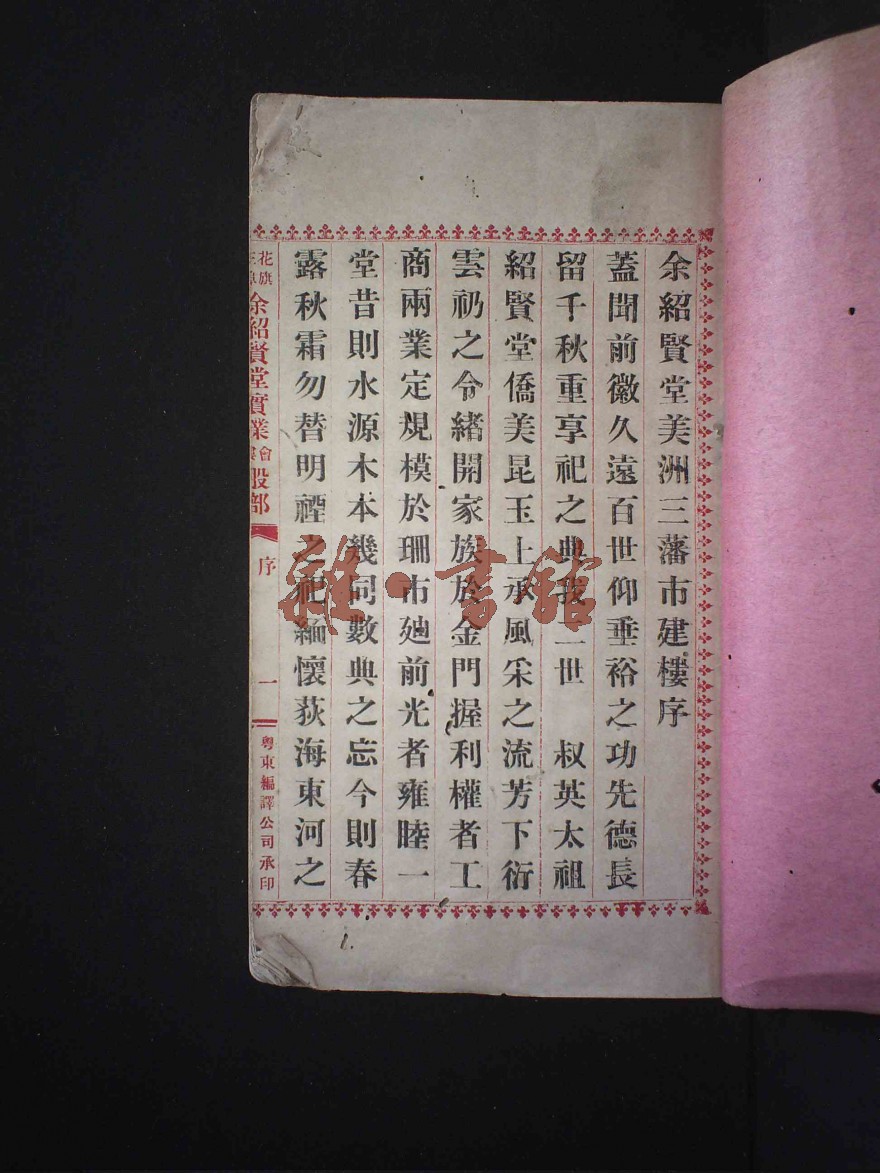 余紹賢堂美洲三藩市建樓序
蓋聞前徽久遠百世仰垂裕之功先德長
留千秋重享祀之典我二世　叔英太祖
紹賢堂僑美昆玉上承風采之流芳下衍
雲礽之令緒開家族於金門握利權者工
商兩業定規模於珊市廸前光者雍睦一
堂昔則水源木本幾同數典之忘今則春
露秋霜勿替明禋之祀緬懷荻海東河之
花旗
余紹賢堂實業會股部
序
一
粵東編譯公司承印
雜·書館